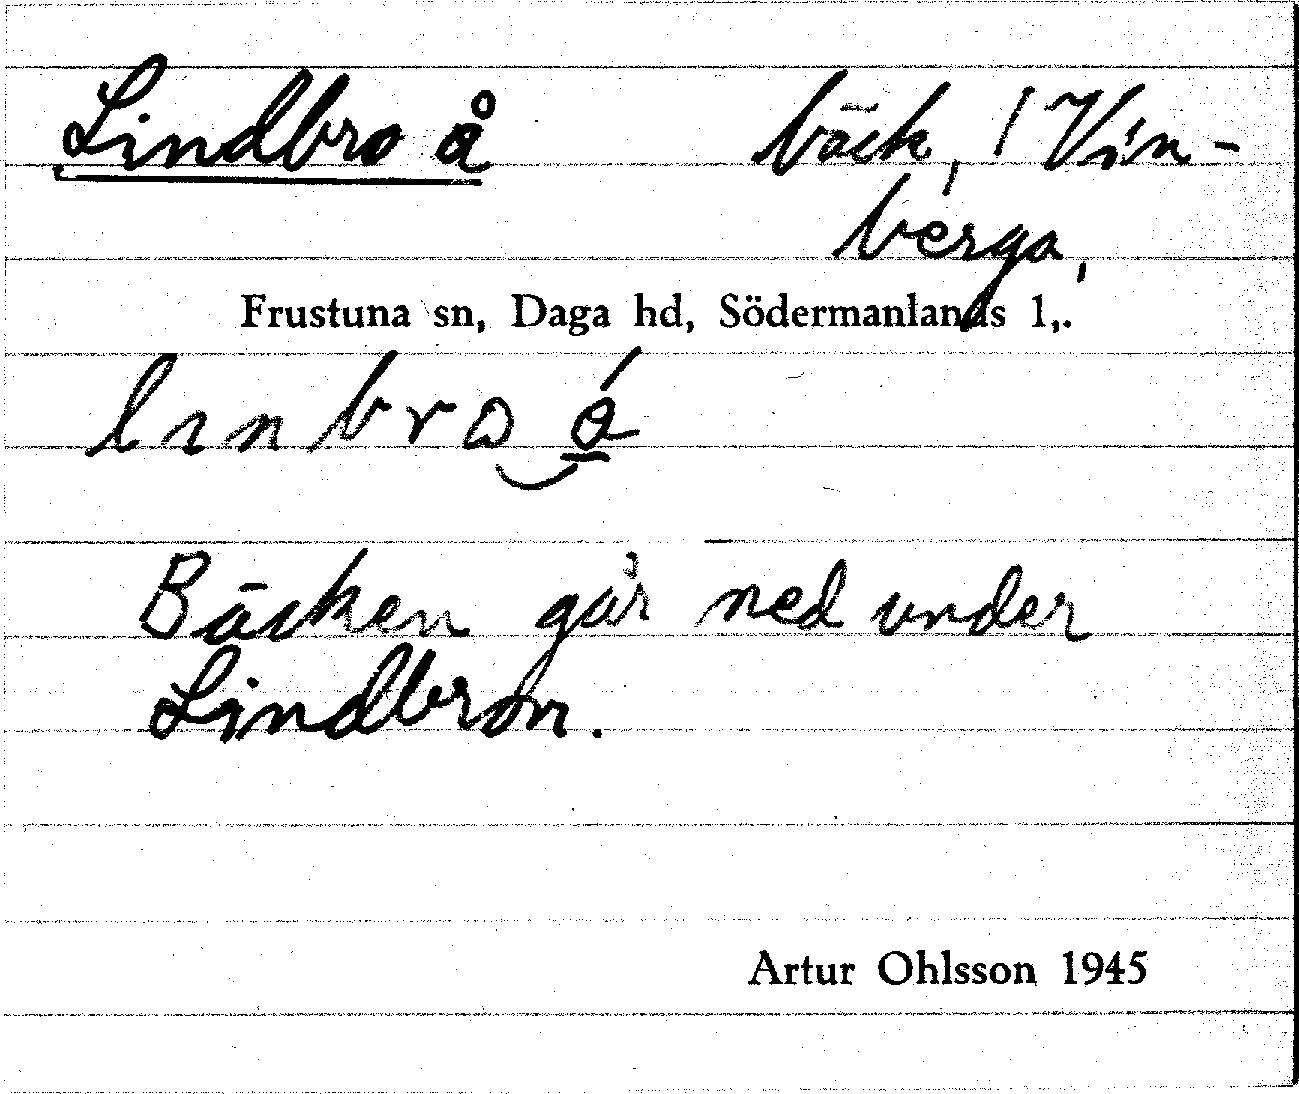 Lindbro å bäck, / Vin-
berga,
Frustuna sn, Daga hd, Södermanlands l,.
Bäcken går ned under
Lindbron.
Artur Ohlsson 1945